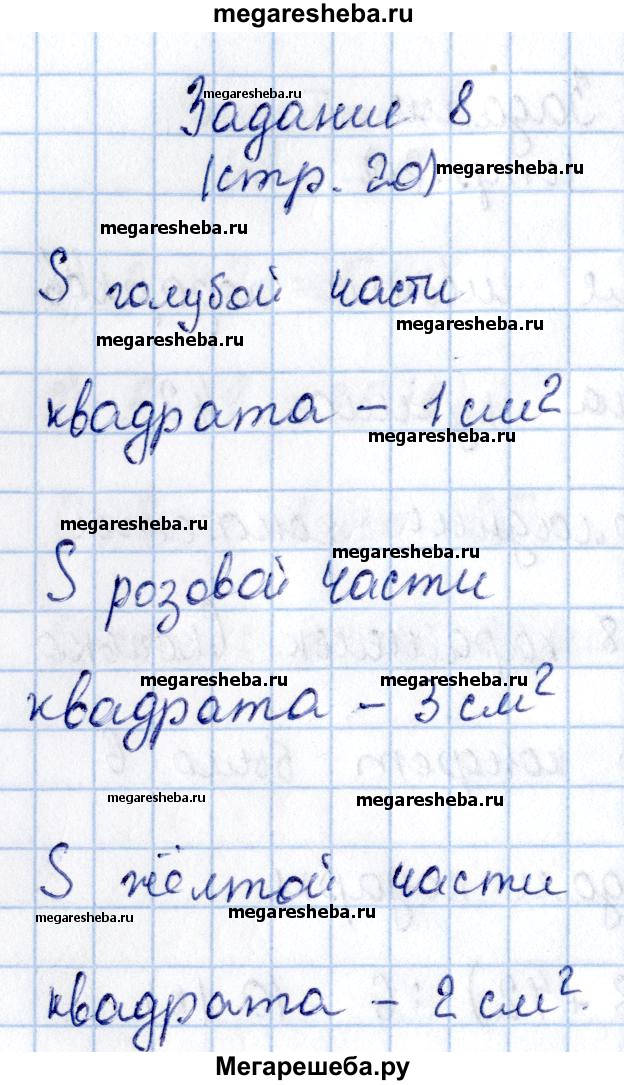 megaresheba.ru
megaresheba.ru
Задание 8
(стр. 20) megaresheba.ru
megaresheba.ru
S голубой части
megaresheba.ru
megaresheba.ru
квадрата - 1 см²
megaresheba.ru
megaresheba.ru
megaresheba.ru
S розовой части
megaresheba.ru megaresheba.ru
квадрата - 3 см²
megaresheba.ru megaresheba.ru
S жёлтой части
megaresheba.ru megaresheba.ru
квадрата - 2 см².
Мегарешеба.ру